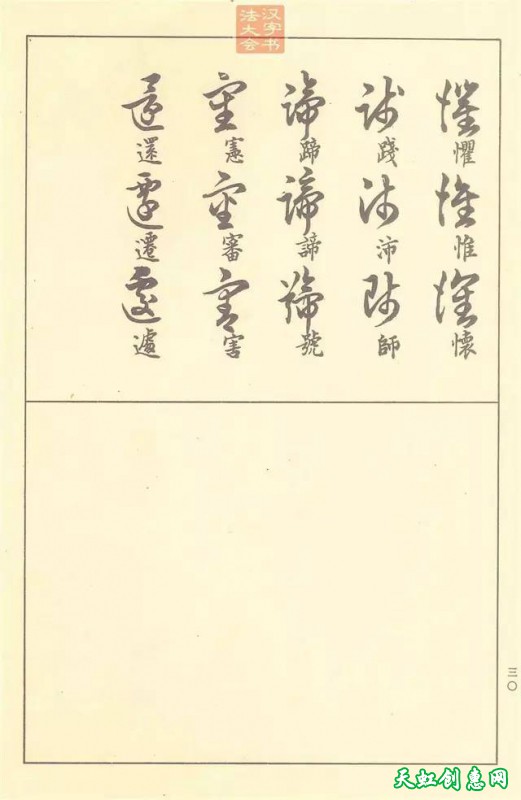 汉字书
法大会
懼
惟
懷
踐
沛
師
蹄
諦
號
憲
審
害
還
遷
遽
三〇
天虹创惠网